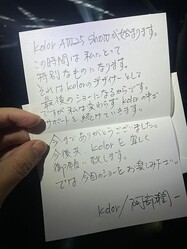 kolor AW25 Showが始まります。
この時間は私にとって
特別なものになります。
それは kolorのデザイナーとして
最後のショーになるからです。
ですが私は変わらず kolorの
サポートを続けていきます。
今までありがとうございました。
今後共 kolor を宜しく
御願い致します。
では今回のショーをお楽しみ下さい。
kolor/阿部潤一